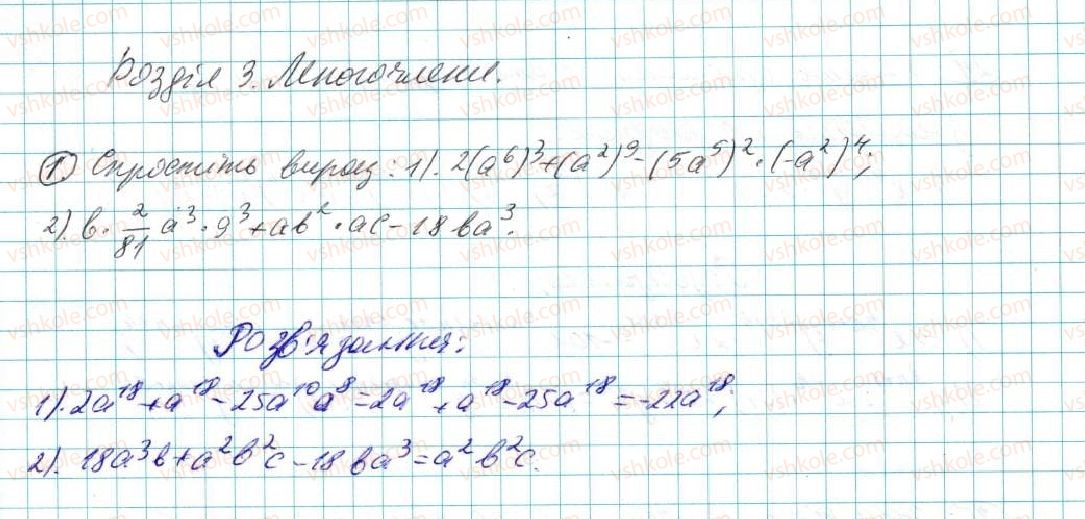 Розділ 3. Многочлени.
① Спростіть вираз: 1). 2(a⁶)³+(a²)⁹-(5a⁵)²·(-a²)⁴;
2). b·2/81 a³·9³+ab²·ac-18ba³.
Розв'язання:
1). 2a¹⁸+a¹⁸-25a¹⁰a⁸=2a¹⁸+a¹⁸-25a¹⁸=-22a¹⁸;
2). 18a³b+a²b²c-18ba³=a²b²c.
vshkole.com